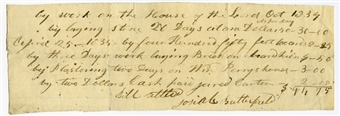 by work on the House of the Lord Oct 1834
by laying stone 20 Days at one Dollar 50 30-00
April 25-1835 by four Hundred fifty feet boards
by three Days work laying Brick on boarding
by Plaistering two Days on Wm Perry house 3-00
by two Dollars Cash paid Jared Carter 2-00
Bill settled
Josiah Butterfield